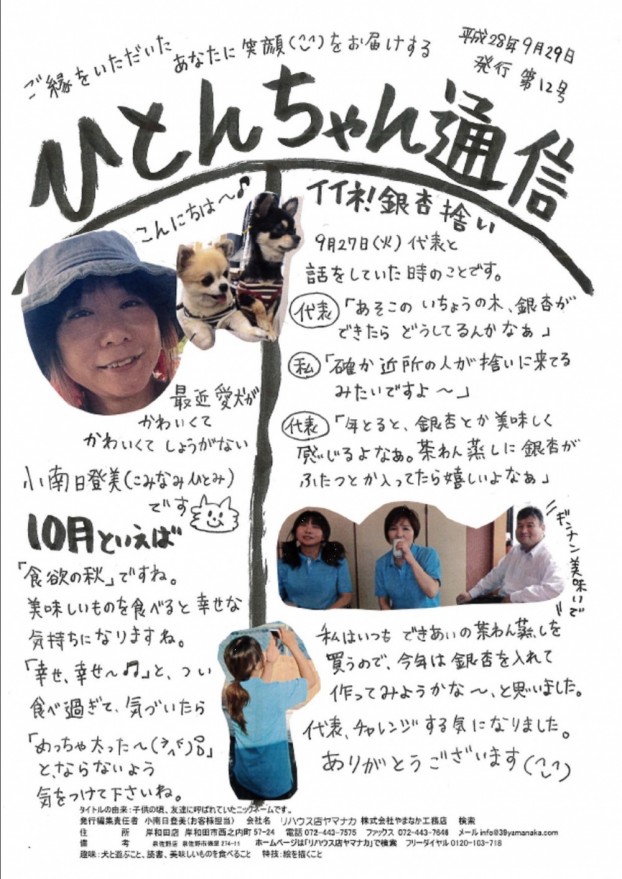 ご縁をいただいた
あなたに笑顔(^^)をお届けする
平成28年9月29日
発行 第12号
ひとんちゃん通信
こんにちは〜♪
最近愛犬が
かわいくて
かわいくてしょうがない
小南日登美(こみなみひとみ)
です
10月といえば
「食欲の秋」ですね。
美味しいものを食べると幸せな
気持ちになりますね。
「幸せ、幸せ〜♫」と、つい
食べ過ぎて、気づいたら
「めっちゃ太った〜
と、ならないよう
気をつけて下さいね。
イイネ!銀杏拾い
9月27日(火)代表と
話をしていた時のことです。
代表「あそこのいちょうの木、銀杏が
できたらどうしてるんかなぁ」
私「確か近所の人が拾いに来てる
みたいですよ〜」
代表「年とると、銀杏とか美味しく
感じるよなぁ。茶わん蒸しに銀杏が
ふたつとか入ってたら嬉しいよなぁ」
ギンナン美味いで
私はいつもできあいの茶わん蒸しを
買うので、今年は銀杏を入れて
作ってみようかな〜、と思いました。
代表、チャレンジする気になりました。
ありがとうございます(^^)
タイトルの由来:子供の頃、友達に呼ばれていたニックネームです。
発行編集責任者 小南日登美(お客様担当) 会社名 リハウス店ヤマナカ 株式会社やまなか工務店 検索
住所 岸和田店 岸和田市西之内町57-24 電話072-443-7575 ファックス 072-443-7646 メールinfo@39yamanaka.com
備考 泉佐野店 泉佐野市 214-11 ホームページは「リハウス店ヤマナカ」で検索 フリーダイヤル0120-163-716
趣味:犬と遊ぶこと、読書、美味しいものを食べること 特技:絵を描くこと